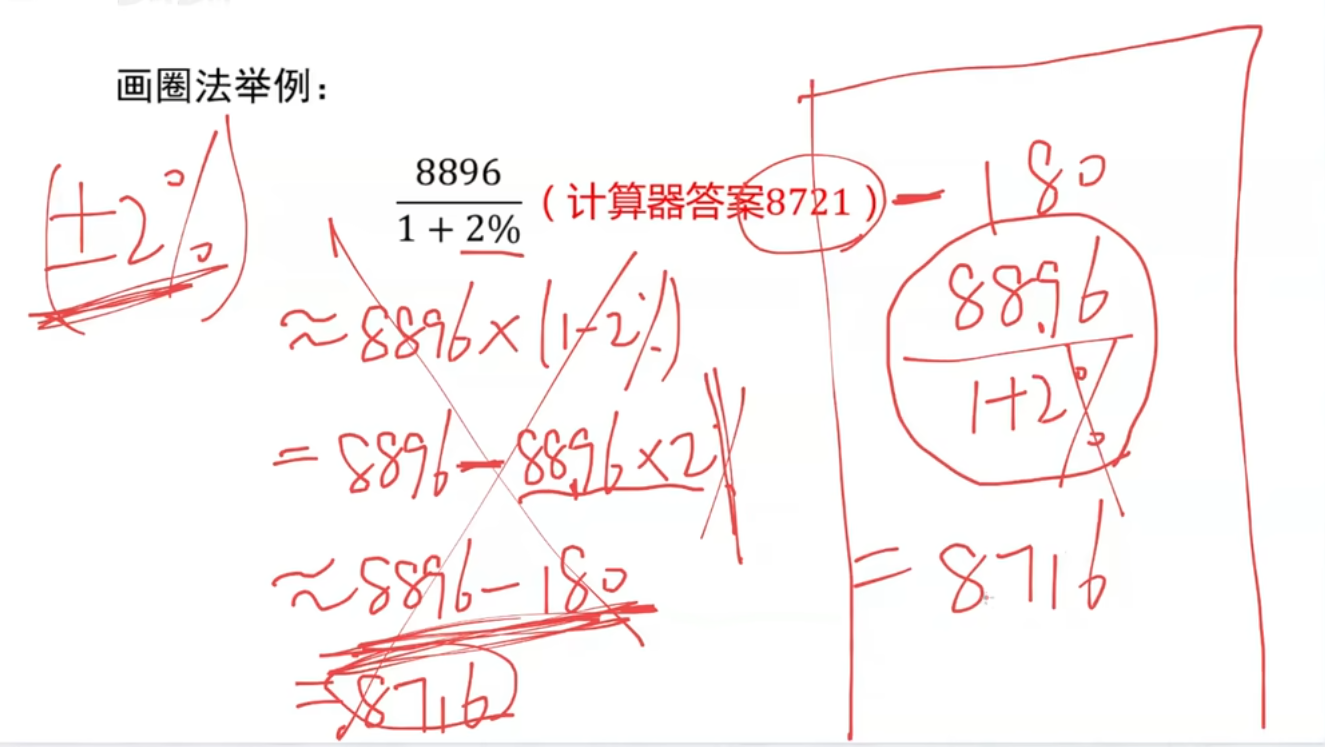 画圈法举例：
(±2%)
8896
1 + 2%
（计算器答案8721）
≈8896×(1-2%)
=8896-8896×2%
≈8896-180
=8716
-180
8896
1+2%
=8716